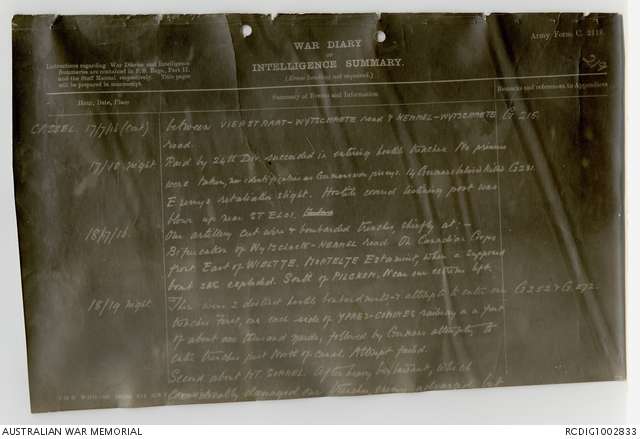 WAR DIARY
OR
INTELLIGENCE SUMMARY.
(Erase heading not required.)
Army Form C. 2118.
219
Instructions regarding War Diaries and Intelligence
Summaries are contained in F.S. Regs., Part II.
and the Staff Manual respectively. Title pages
will be prepared in manuscript.
Hour, Date, Place
Summary of Events and Information
Remarks and references to Appendices
CASSEL. 17/7/16 (cont) between VIERSTRAAT-WYTSCHAETE road & KEMMEL-WYTSCHAETE G 215
road.
17/18 night Raid by 24th Div. succeeded in entering hostile trenches. No prisoners
were taken, no identifications as Germans wore 14 Germans believed killed G231
Enemy's retaliation slight. Hostile covered listening post was
blown up near ST ELOI.
18/7/16. Our artillery cut wire & bombarded trenches, chiefly at:-
Bifurcation of Wytschaete-KEMMEL road. On Canadian Corps
front East of WIELTJE, MORTELTJE Estaminet, when a supposed
bomb store exploded. South of PILCKEM. Near our extreme left.
18/19 night There were 2 distinct hostile bombardments & attempts to enter our G252 &
trenches. First, one each side of YPRES-COMINES railway on a front
of about one thousand yards, followed by Germans attempting to
enter trenches just North of canal. Attempt failed.
Second about MT. SORREL. After heavy bombardment, which
considerably damaged our trenches enemy advanced but
AUSTRALIAN WAR MEMORIAL
RCDIG1002833